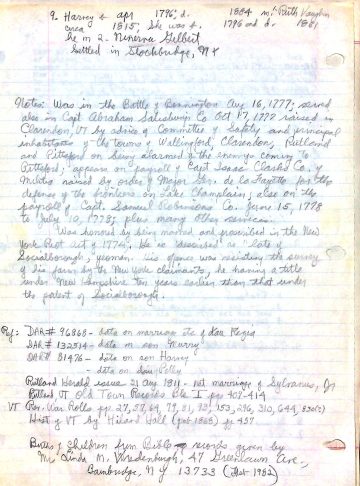 9. Harvey b apr 1796, d. 1884 m. Ruth Vaughn
circa 1815; She was b. 1796 and d. 1881
he m 2. Minerva Gilbert
settled in Stockbridge, NY
Notes: Was in the Battle of Bennington Aug 16, 1777; served
also in Capt Abraham Salisburys Co Oct 17, 1777 raised in
Clarendon, VT by advice of Committee of Safety and principal
inhabitants of the towns of Wallingford, Clarendon, Rutland
and Pittsford on being alarmed of the enemys coming to
Pittsford; appears on payroll of Capt Isaac Clarks Co. of
Militia raised by order of Major Gen. de La Fayette for the
defense of the frontiers on Lake Champlain; also on the
payroll of Capt. Samuel Robinsons Co. June 15, 1778
to July 10, 1778; plus many other services.
Was honored by being named and proscribed in the New
York Riot Act of 1774. He is described as "late of
Socialborough, yeoman. His offence was resisting the survey
of his farm by the New York claimants, he having a title
under New Hampshire ten years earlier than that under
the patent of Socialborough.
Ref: DAR# 96868 - data on marriage etc of dau Kezia
DAR# 132514 - data on son Harry
DAR# 81476 - data on son Harvey
- data on dau Polly
Rutland Herald issue 21 Aug 1811 - not marriage of Sylvanus, Jr
Rutland, VT Old Town Records Bk I pp 407-414
VT Rev. War Rolls pp. 27, 57, 64, 79, 81, 83, 153, 296, 310, 644,
Hist of VT by Hiland Hall (pub 1868) pg 457
Births of Children from Bible records given by
Mrs Linda M. Vredenburgh, 47 Greenlawn Ave,
Bainbridge, N Y 13733 (1982)